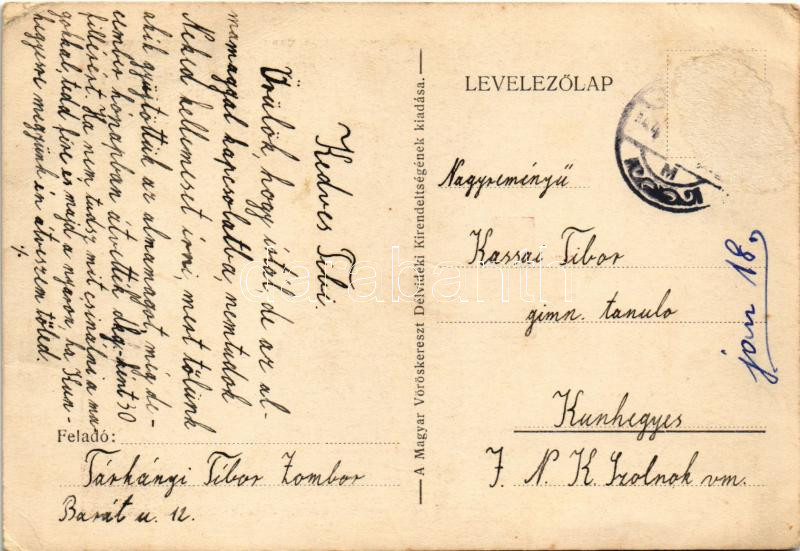 Kedves Tibi.
Örülök, hogy írtál, de az al-
mamaggal kapcsolatba, nemtudok
Neked kellemeset írni, mert tőlünk
akik gyűjtöttük az almamagot, még de-
cember hónapban átvették dkg.-ként 30
fillérért. Ha nem tudsz mit csinálni a ma
gokkal, tedd félre és majd a nyáron, ha Kun-
hegyesre megyünk én átveszem tőled.
%
Feladó:
Tárkányi Tibor Zombor
Barát u. 12.
— A Magyar Vöröskereszt Délvidéki Kirendeltségének kiadása. —
LEVELEZŐLAP
Nagyreményű
Kassai Tibor
gimn. tanuló
Kunhegyes
J. N. K. Szolnok vm.
jan 18.
M
darabanth